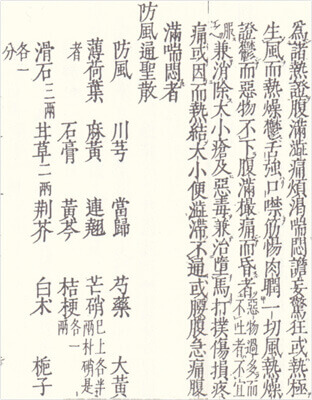 爲諸熱證腹滿澁痛煩渴喘悶譫妄驚狂或熱極
生風而熱燥鬱舌強口噤筋惕肉瞤一切風熱燥
證鬱而惡物不下腹滿撮痛而昏者惡物過多而不吐者不宜
服之兼消除大小瘡及惡毒兼治墮馬打撲傷損疼
痛或因而熱結大小便澁滯不通或腰腹急痛腹
滿喘悶者
防風通聖散
防風 川芎 當歸 芍藥 大黃
薄荷葉 麻黃 連翹 芒硝已上各半兩朴硝是
者 石膏 黃芩 桔梗各一兩
滑石三兩 甘草二兩 荆芥 白朮 梔子
各一分